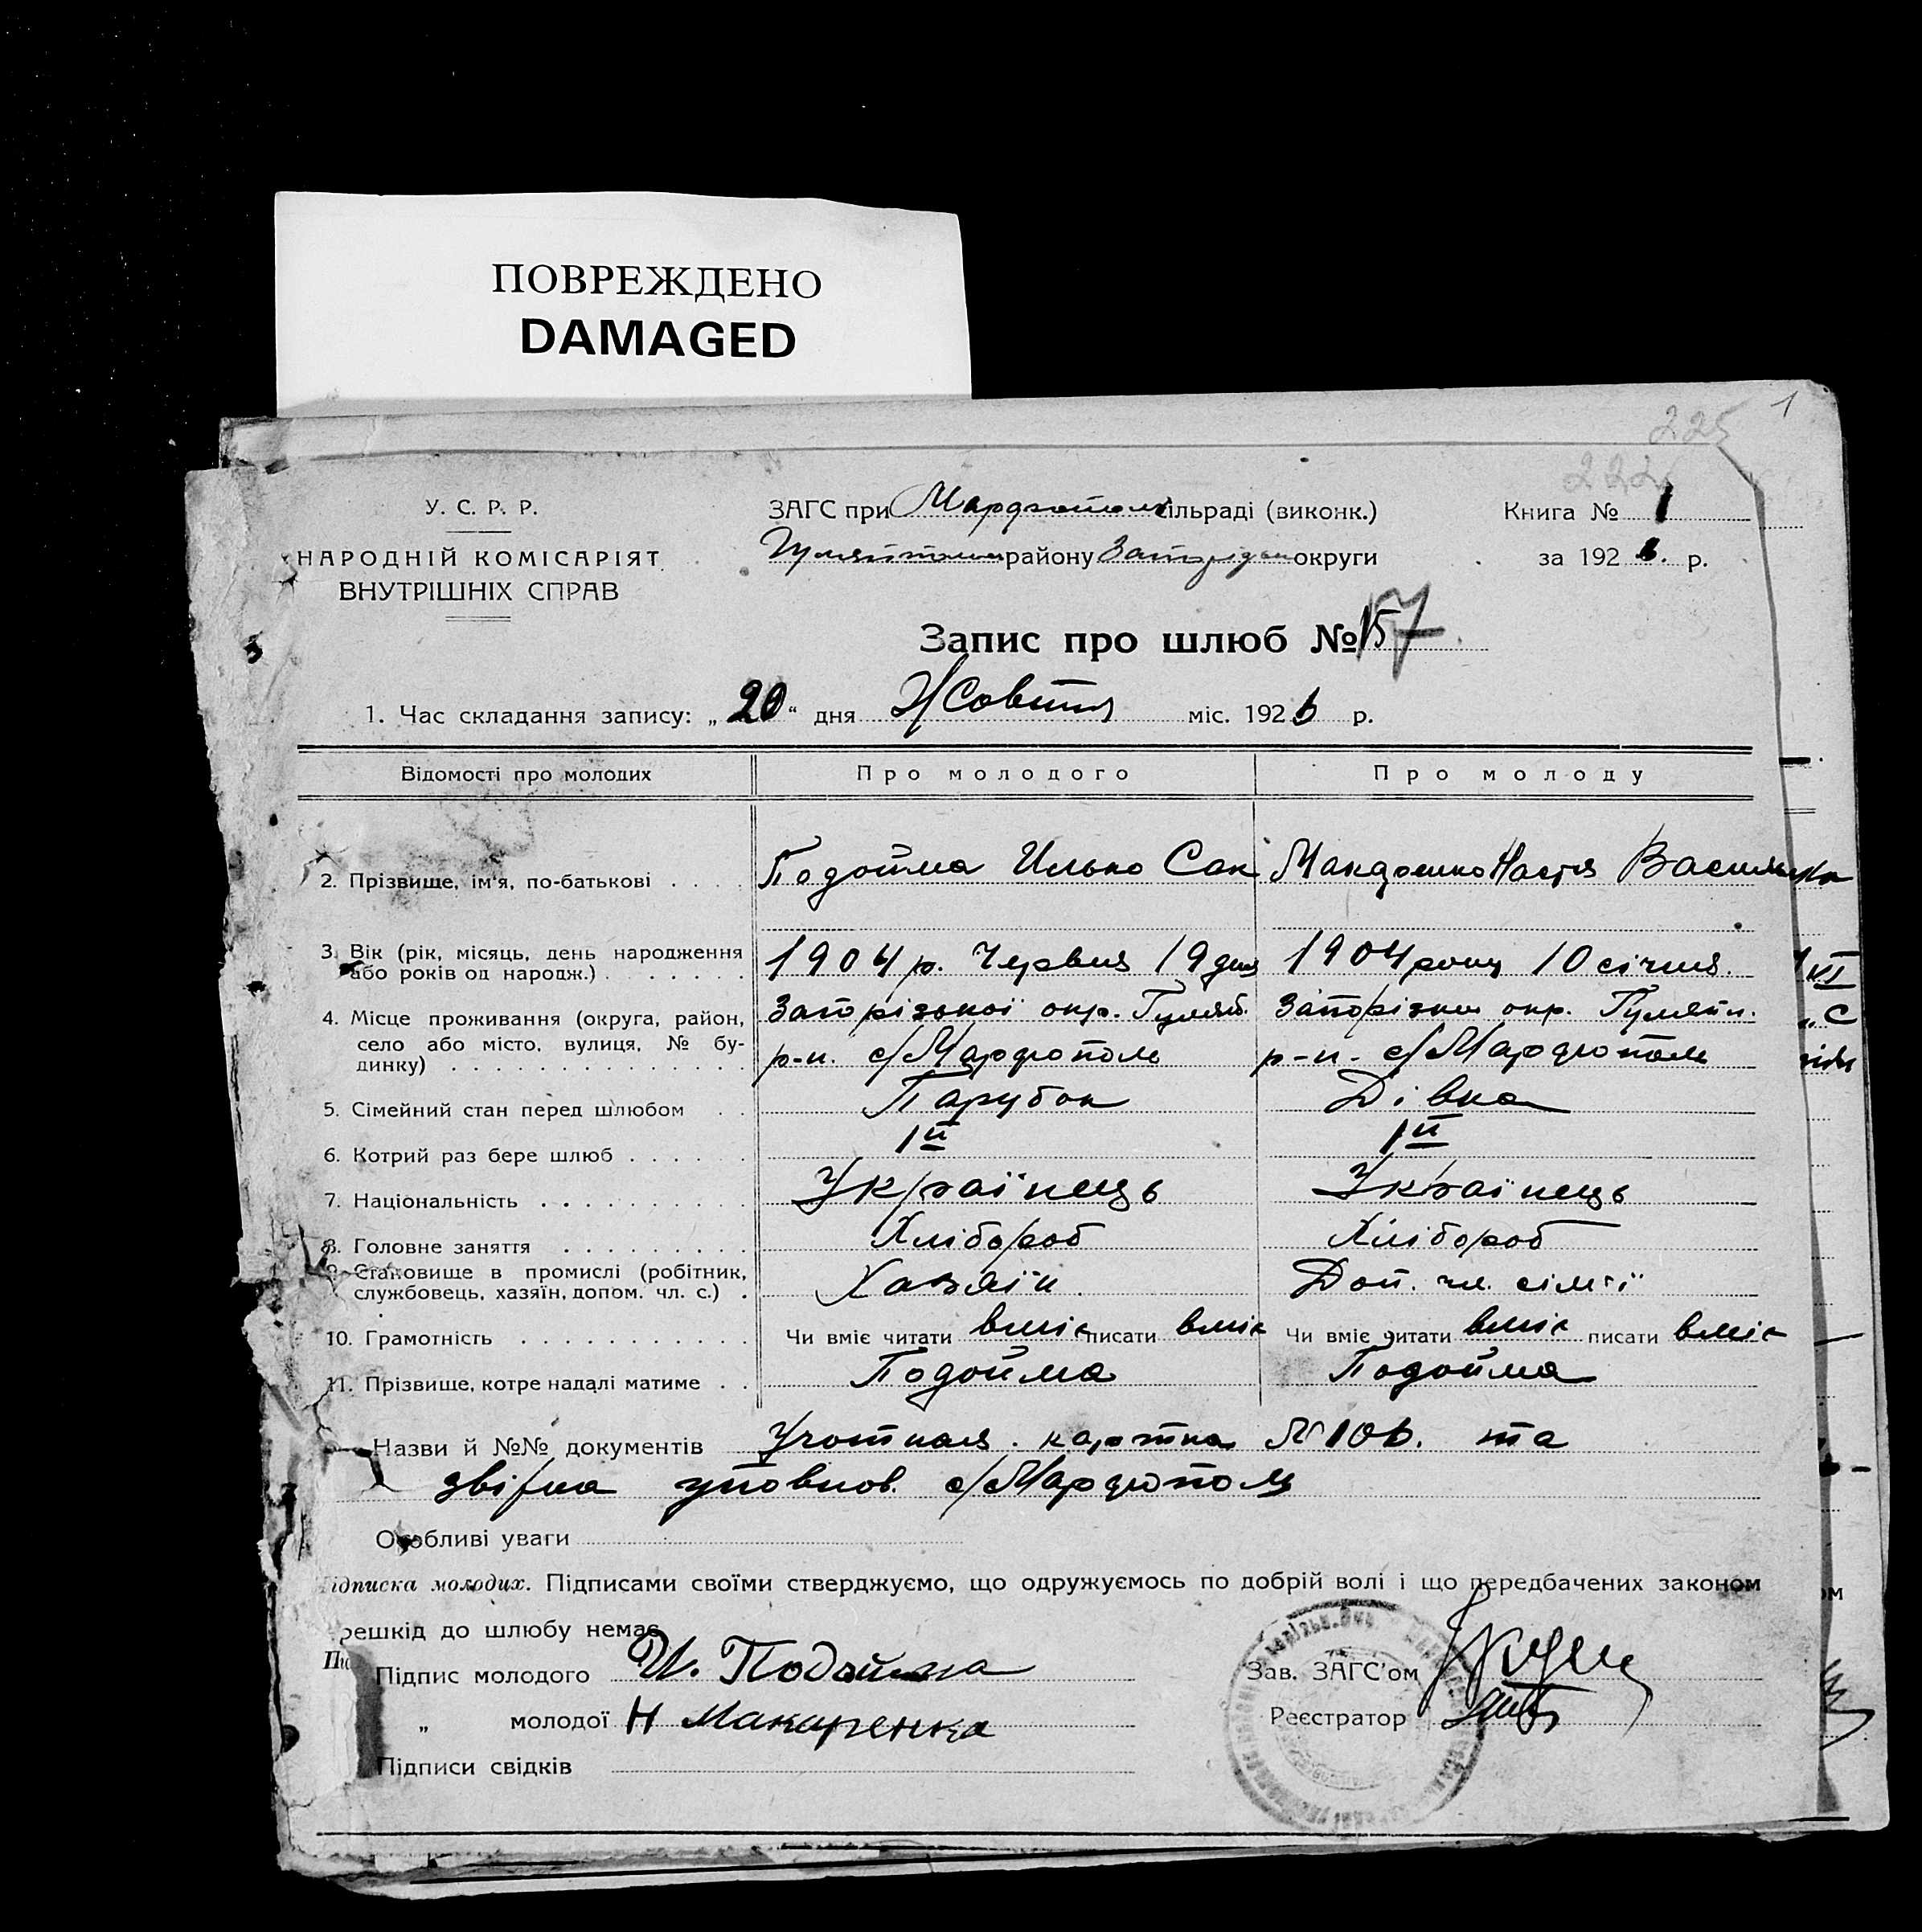 ПОВРЕЖДЕНО
DAMAGED
1
225
222
У. С. Р. Р.
НАРОДНІЙ КОМІСАРІЯТ
ВНУТРІШНІХ СПРАВ
ЗАГС при Марфопол сільраді (виконк.)
району округи
Книга № 1
за 192 6. р.
Запис про шлюб № 157
1. Час складання запису: „ 20 “ дня Жовтня міс. 192 6 р.
Відомості про молодих
Про молодого
Про молоду
2. Прізвище, ім'я, по-батькові . . . .
Подойма Илько Сак
Настя Василівна
3. Вік (рік, місяць, день народження або років од народж.) . . . . . .
1904 р. Червня 19 дня
1904 року 10 січня.
4. Місце проживання (округа, район, село або місто, вулиця, № будинку) . . . . . . . . . . . . . .
Запорізької окр. Гуляй.
р-н. с/Марфополь
Запорізьк окр. Гуляйп.
р-н. с/Марфополь
5. Сімейний стан перед шлюбом . .
Парубок
Дівка
6. Котрий раз бере шлюб . . . . . .
1й
1й
7. Національність . . . . . . . . . .
Українець
Українець
8. Головне заняття . . . . . . . . .
Хлібороб
Хлібороб
9. Становище в промислі (робітник, службовець, хазяїн, допом. чл. с.) .
Хазяїн
Доп. чл. сімʼї
10. Грамотність . . . . . . . . . . .
Чи вміє читати вміє писати вміє
Чи вміє читати вміє писати вміє
11. Прізвище, котре надалі матиме . .
Подойма
Подойма
Назви й №№ документів Учотная картка № 106. та
звірка уповнов. с/Марфополя
Особливі уваги
Підписка молодих. Підписами своїми стверджуємо, що одружуємось по добрій волі і що передбачених законом
решкід до шлюбу немає.
Підпис молодого И. Подойма
„ молодої Н Макаренка
Підписи свідків
Зав. ЗАГС'ом
Реєстратор